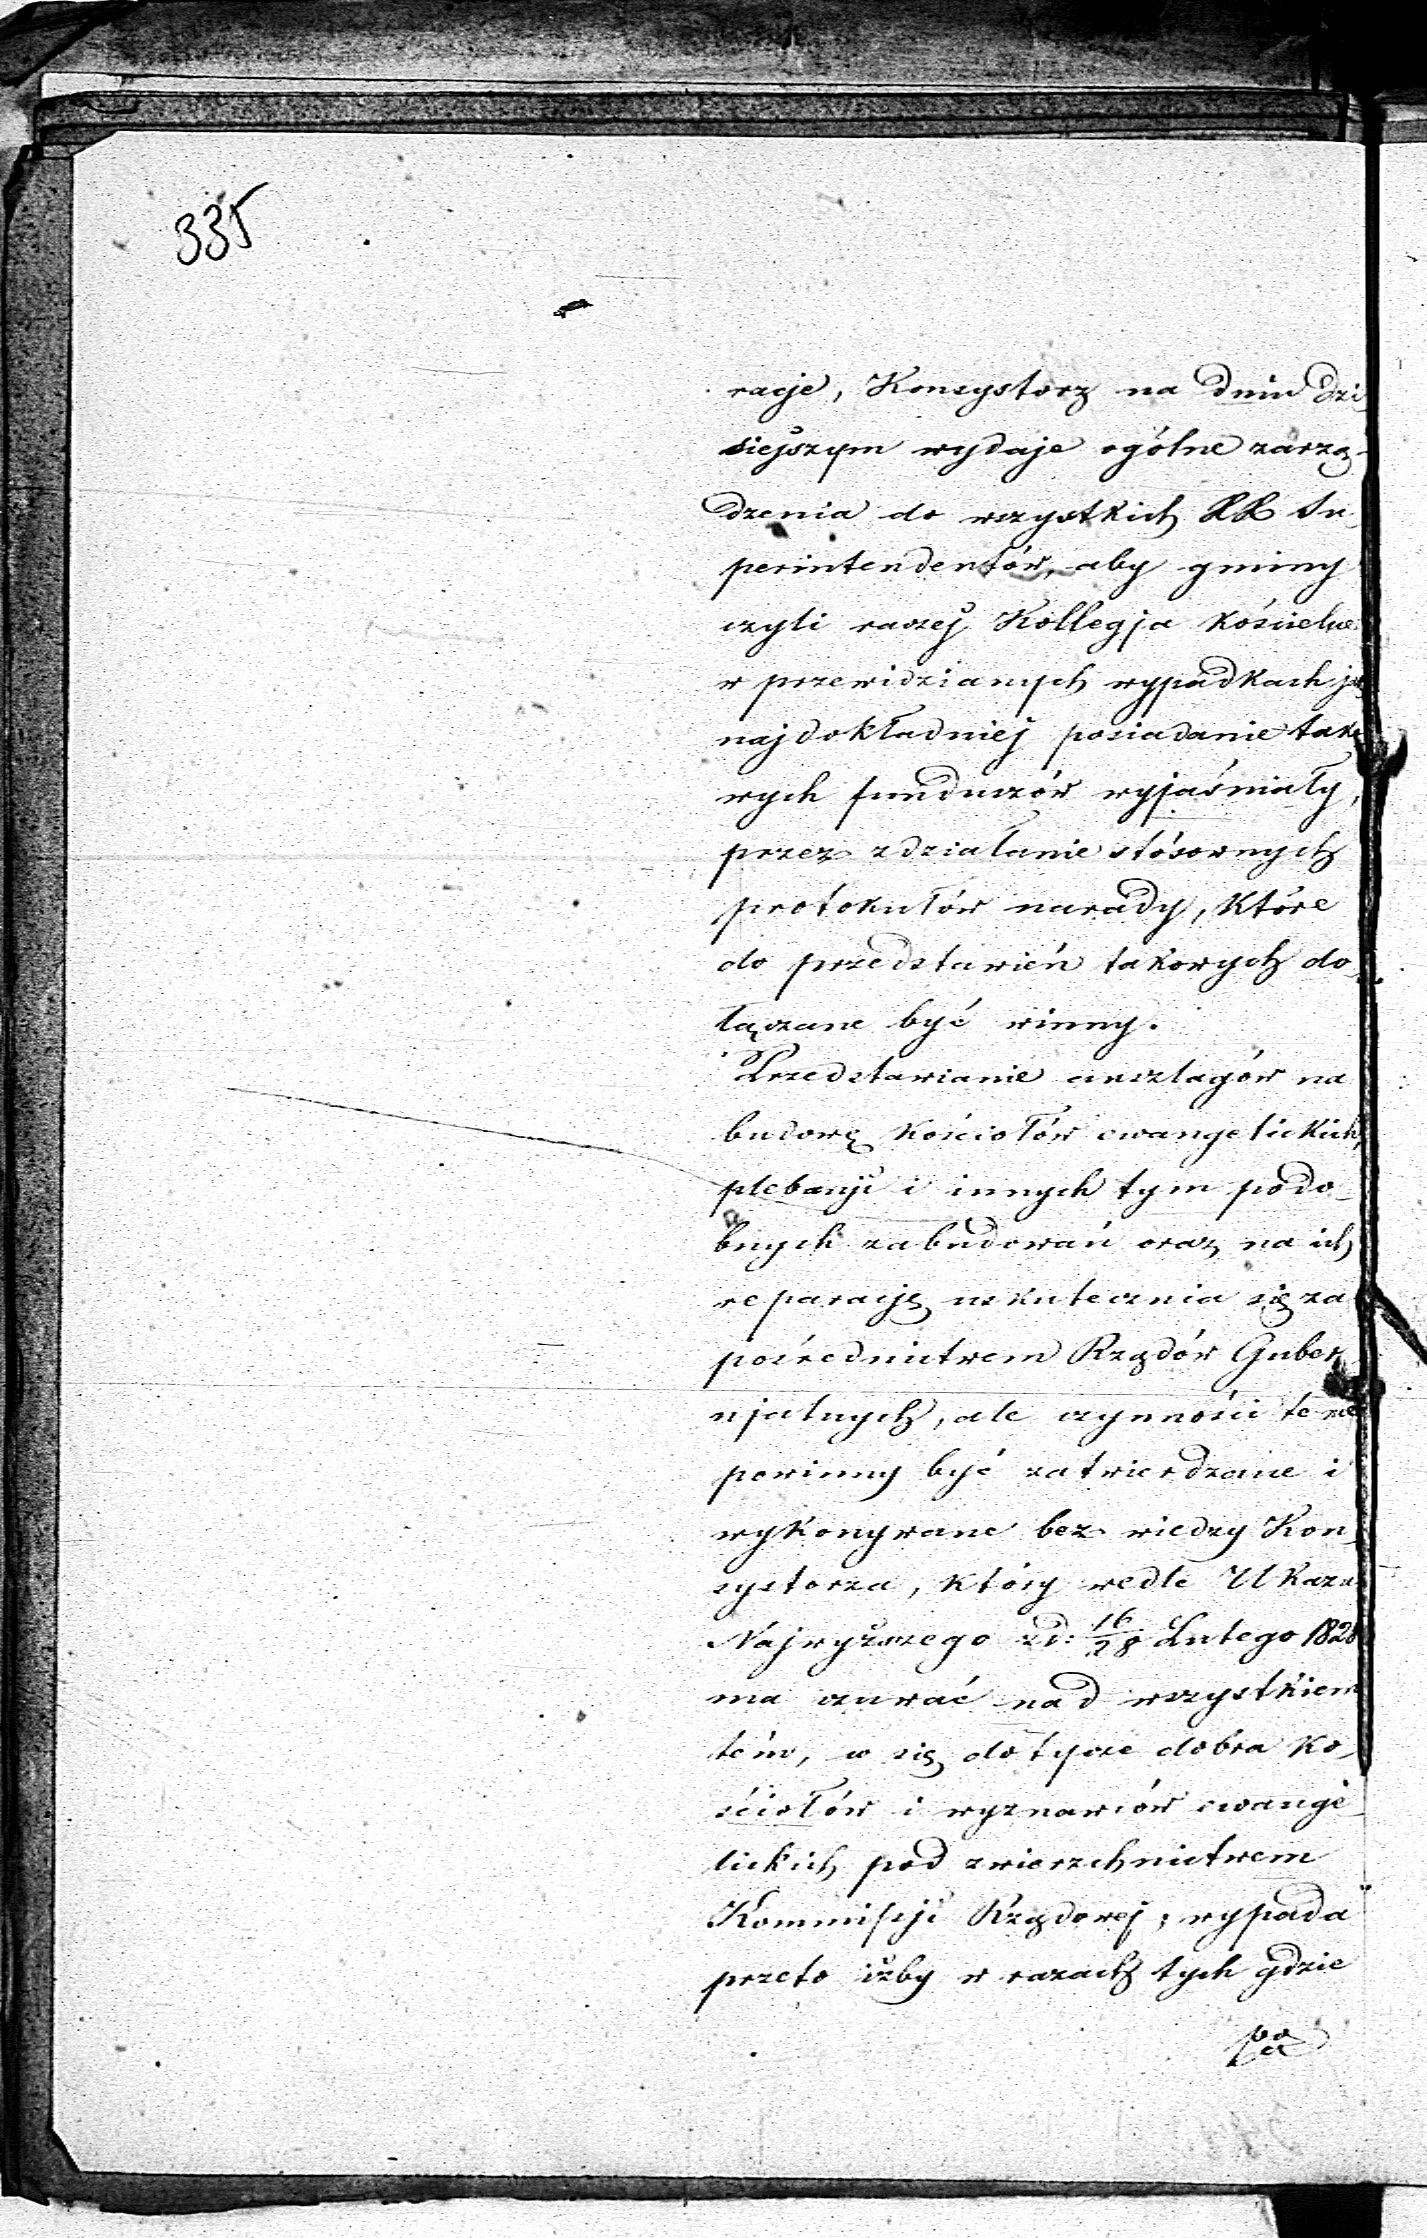 335
racje, Konsystorz na dniu dzi
siejszym wydaje ogólne zarzą-
dzenia do wszystkich XX Su-
perintendentów, aby gminy
czyli raczej Kollegja kościelne
w przewidzianych wypadkach jak
najdokładniej posiadanie tako
wych funduszów wyjaśniały,
przez zdziałanie stósownych
protokułów narady, które
do przedstawień takowych do-
łączane być winny.
Przedstawianie anszlagów na
budowę kościołów ewangelickich,
plebanji i innych tym podo-
bnych zabudowań oraz na ich
reparacje uskutecznia się za
pośrednictwem Rządów Guber
njalnych, ale czynności te nie
powinny być zatwierdzane i
wykonywane bez wiedzy Kon-
systorza, który wedle Ukazu
Najwyższego z d: 16/28 Lutego 1828
ma czuwać nad wszystkiem
tém, co się dotycze dobra ko-
ściołów i wyznawców ewange-
lickich pod zwierzchnictwem
Kommissji Rządowej; wypada
przeto iżby w razach tych gdzie